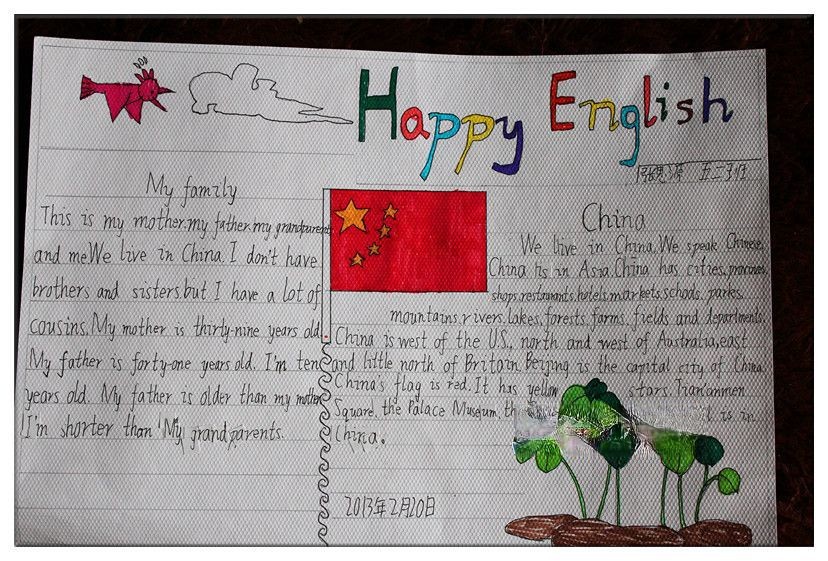 Happy English
五二班
My family
This is my mother.my father.my grandparents
and me.We live in China. I don't have
brothers and sisters.but I have a lot of
cousins. My mother is thirty-nine years old.
My father is forty-one years old. I'm ten
years old. My father is older than my mother
I'm shorter than My grandparents.
China
We live in China. We speak Chinese.
China is in Asia. China has cities, provinces,
shops, restaurants, hotels, markets, schools, parks,
mountains, rivers, lakes, forests, farms, fields and departments.
China is west of the U.S, north and west of Australia, east
and little north of Britain. Beijing is the capital city of China.
China's flag is red. It has yellow stars. Tian'anmen
Square, the Palace Museum, th l is in
China.
2013年2月20日